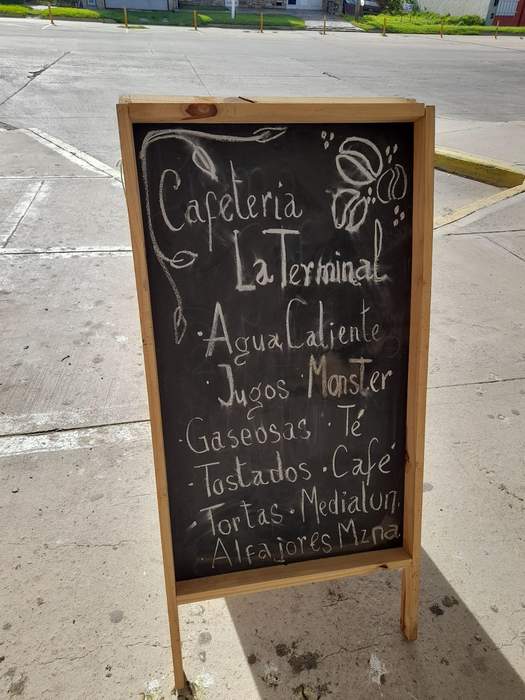 Cafeteria
La Terminal
·Agua Caliente
·Jugos ·Monster
·Gaseosas ·Té
·Tostados ·Café
·Tortas ·Medialun.
·Alfajores Mzna